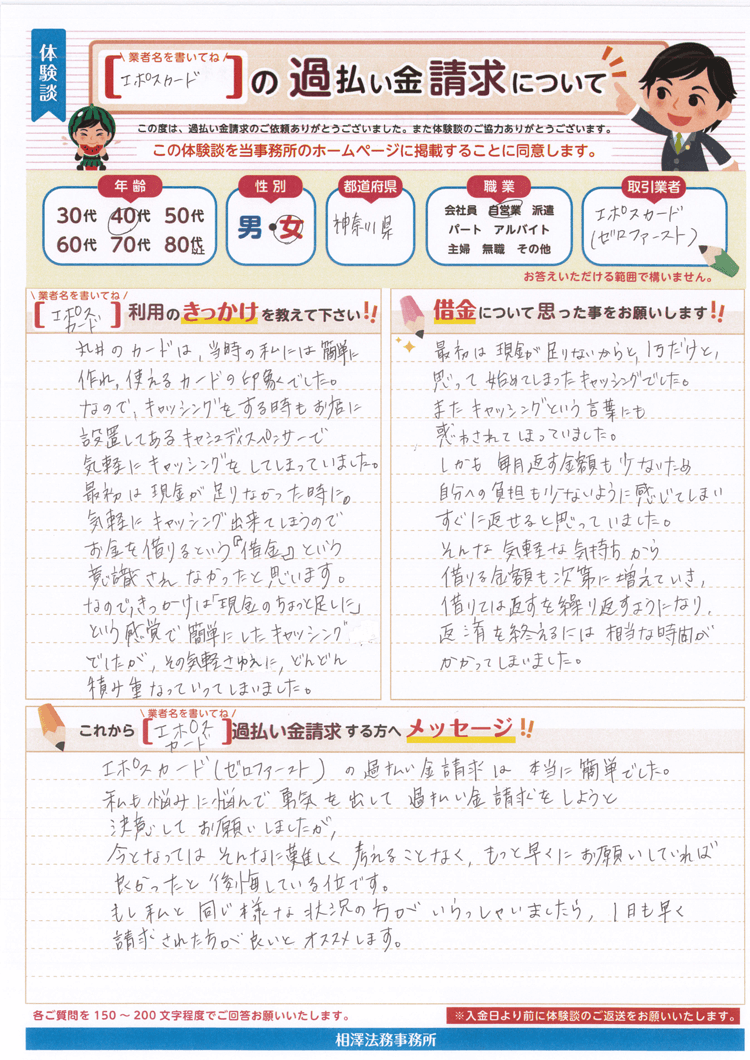 体験談
業者名を書いてね
[エポスカード]の過払い金請求について
この度は、過払い金請求のご依頼ありがとうございました。また体験談のご協力ありがとうございます。
この体験談を当事務所のホームページに掲載することに同意します。
年齢
30代 40代 50代
60代 70代 80代以上
性別
男・女
都道府県
神奈川県
職業
会社員 自営業 派遣
パート アルバイト
主婦 無職 その他
取引業者
エポスカード
(ゼロファースト)
お答えいただける範囲で構いません。
業者名を書いてね
[エポスカード]利用のきっかけを教えて下さい!!
丸井のカードは、当時の私には簡単に
作れ、使えるカードの印象でした。
なので、キャッシングをする時もお店に
設置してあるキャシュディスペンサーで
気軽にキャッシングをしてしまっていました。
最初は現金が足りなかった時に。
気軽にキャッシング出来てしまうので
お金を借りるという『借金』という
意識されなかったと思います。
なので、きっかけは「現金のちょっと足しに」
という感覚で簡単にしたキャッシング
でしたが、その気軽さゆえに、どんどん
積み重なっていってしまいました。
借金について思った事をお願いします!!
最初は現金が足りないからと、1万だけと、
思って始めてしまったキャッシングでした。
またキャッシングという言葉にも
惑わされてしまっていました。
しかも毎月返す金額も少ないため
自分への負担も少ないように感じてしまい
すぐに返せると思っていました。
そんな気軽な気持ちから
借りる金額も次第に増えていき、
借りては返すを繰り返すようになり、
返済を終えるには相当な時間が
かかってしまいました。
業者名を書いてね
これから[エポスカード]過払い金請求する方へメッセージ!!
エポスカード(ゼロファースト)の過払い金請求は本当に簡単でした。
私も悩みに悩んで勇気を出して過払い金請求をしようと
決意してお願いしましたが、
今となってはそんなに難しく考えることなく、もっと早くにお願いしていれば
良かったと後悔している位です。
もし私と同じ様な状況の方がいらっしゃいましたら、1日も早く
請求された方が良いとオススメします。
各ご質問を150～200文字程度でご回答お願いいたします。
※入金日より前に体験談のご返送をお願いいたします。
相澤法務事務所